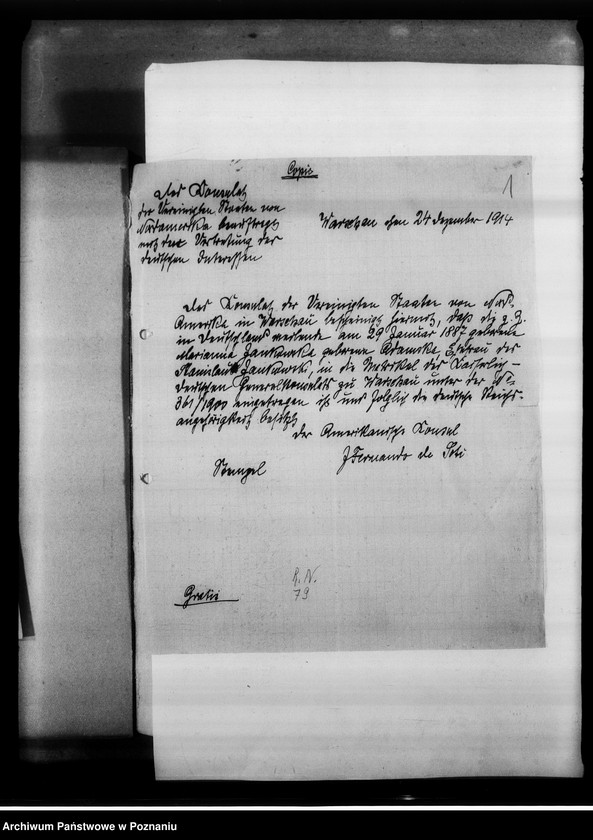 Copie
1
Das Konsulat
der Vereinigten Staaten von
Nordamerika beauftragt
mit der Vertretung der
deutschen Interessen
Warschau den 24 Dezember 1914
Das Konsulat der Vereinigten Staaten von Nrd.
Amerika in Warschau bescheinigt hiermit, daß die z. Z.
in Deutschland weilende am 29 Januar 1887 geborene
Marianna Jankowska geborene Adamska, Ehefrau des
Stanislaus Jankowski, in die Matrikel des Kaiserlich-
Deutschen Generalkonsulats zu Warschau unter der No
361/1900 eingetragen ist und folglich die deutsche Reichs-
angehörigkeit besitzt
Der Amerikanische Konsul
Stempel
J Fernando de Soti
Gratis
R. N.
79
Archiwum Państwowe w Poznaniu